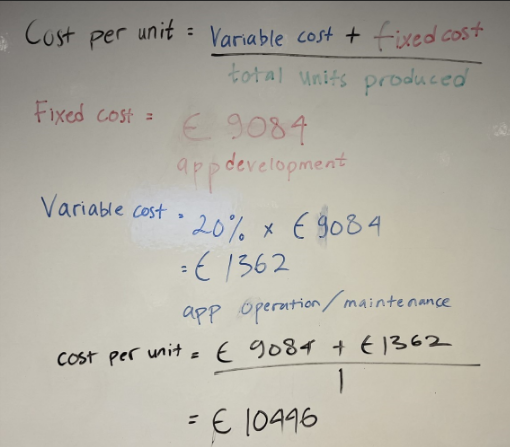 Cost per unit = Variable cost + fixed cost
total units produced
Fixed cost = € 9084
app development
Variable cost = 20% x € 9084
= € 1362
app operation/maintenance
cost per unit = € 9084 + € 1362
1
= € 10446